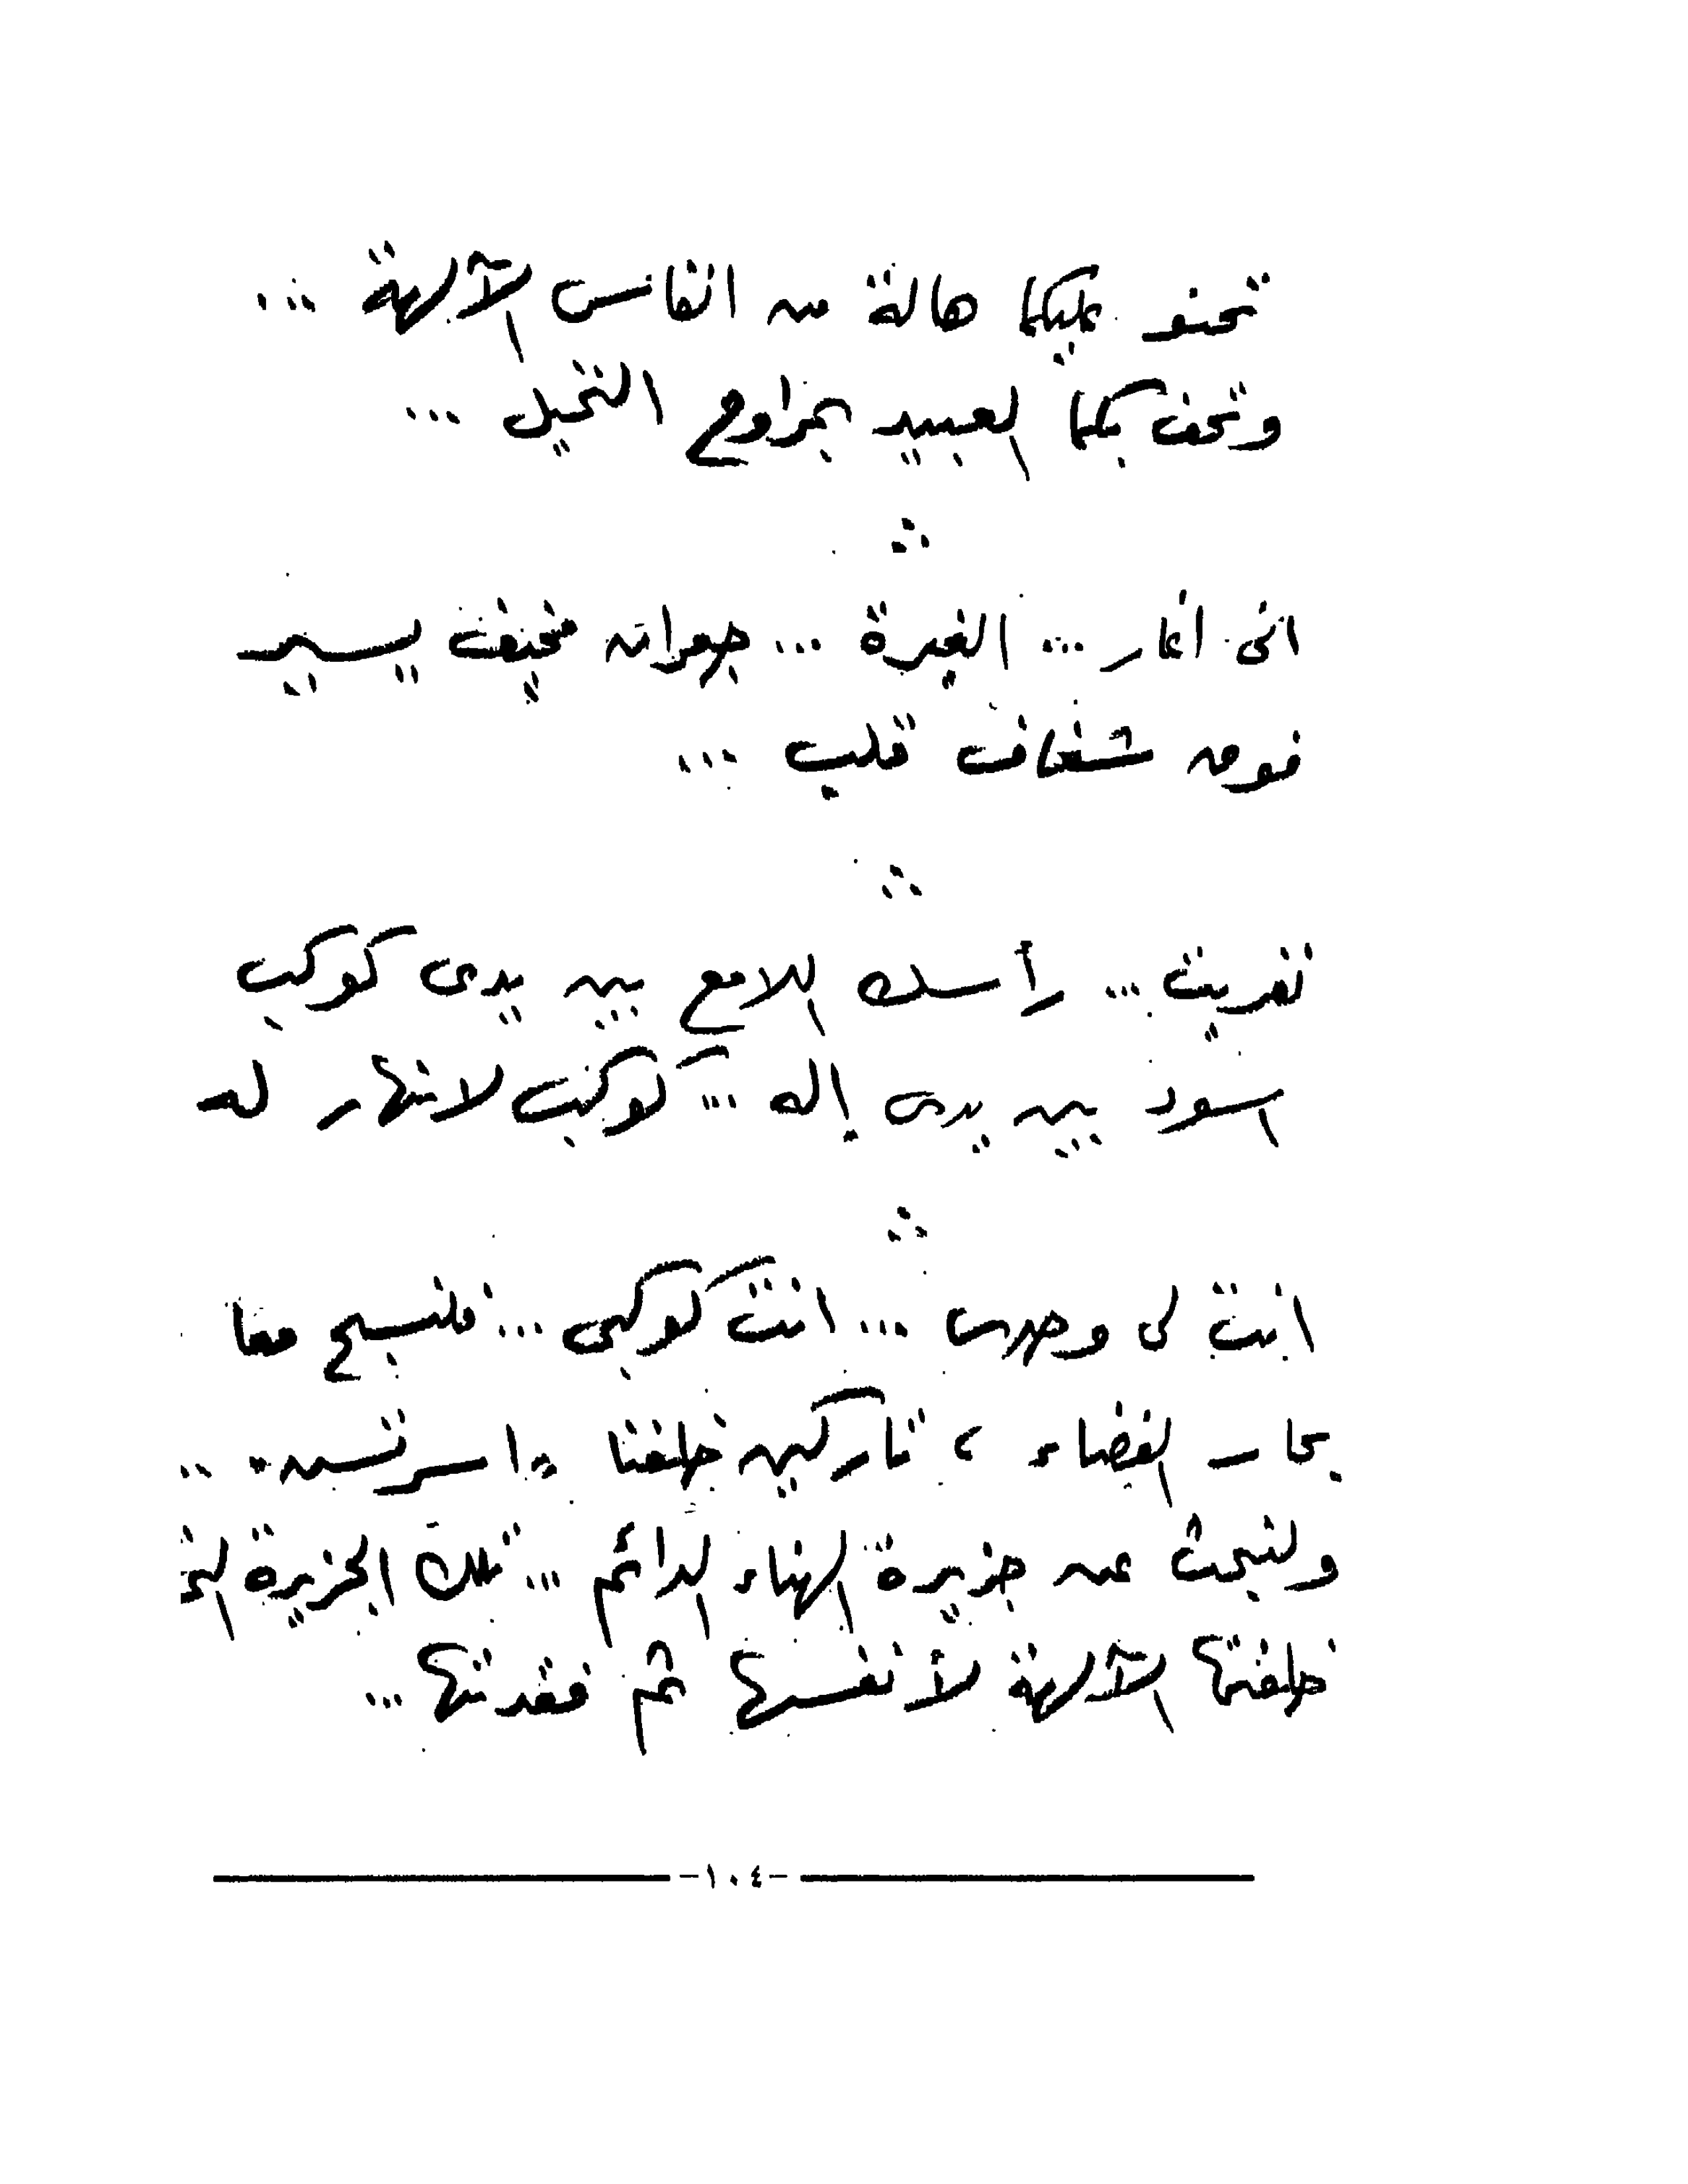 تحنو عليكما هالة من انفاس الآلهة ...
وتحف بكما العبيد بمراوح النخيل ...
انى أغار ... الغيرة ... جعران مخيف يسير
فوق شغاف قلب ...
نفريت ... رأسك اللامع بين يدى كوكب
اسود بين يدى إله ... كوكب لا نهار له
انت لى وحدى ... انت كوكبى ... فلنسبح معا
بحار الفضاء ، تاركين خلفنا " اسرتسن " ..
ولنبحث عن جزيرة الهناء الدائم ... تلك الجزيرة التى
خلقتها الآلهة لأنفسها ثم فقدتها ...
-١٠٤-